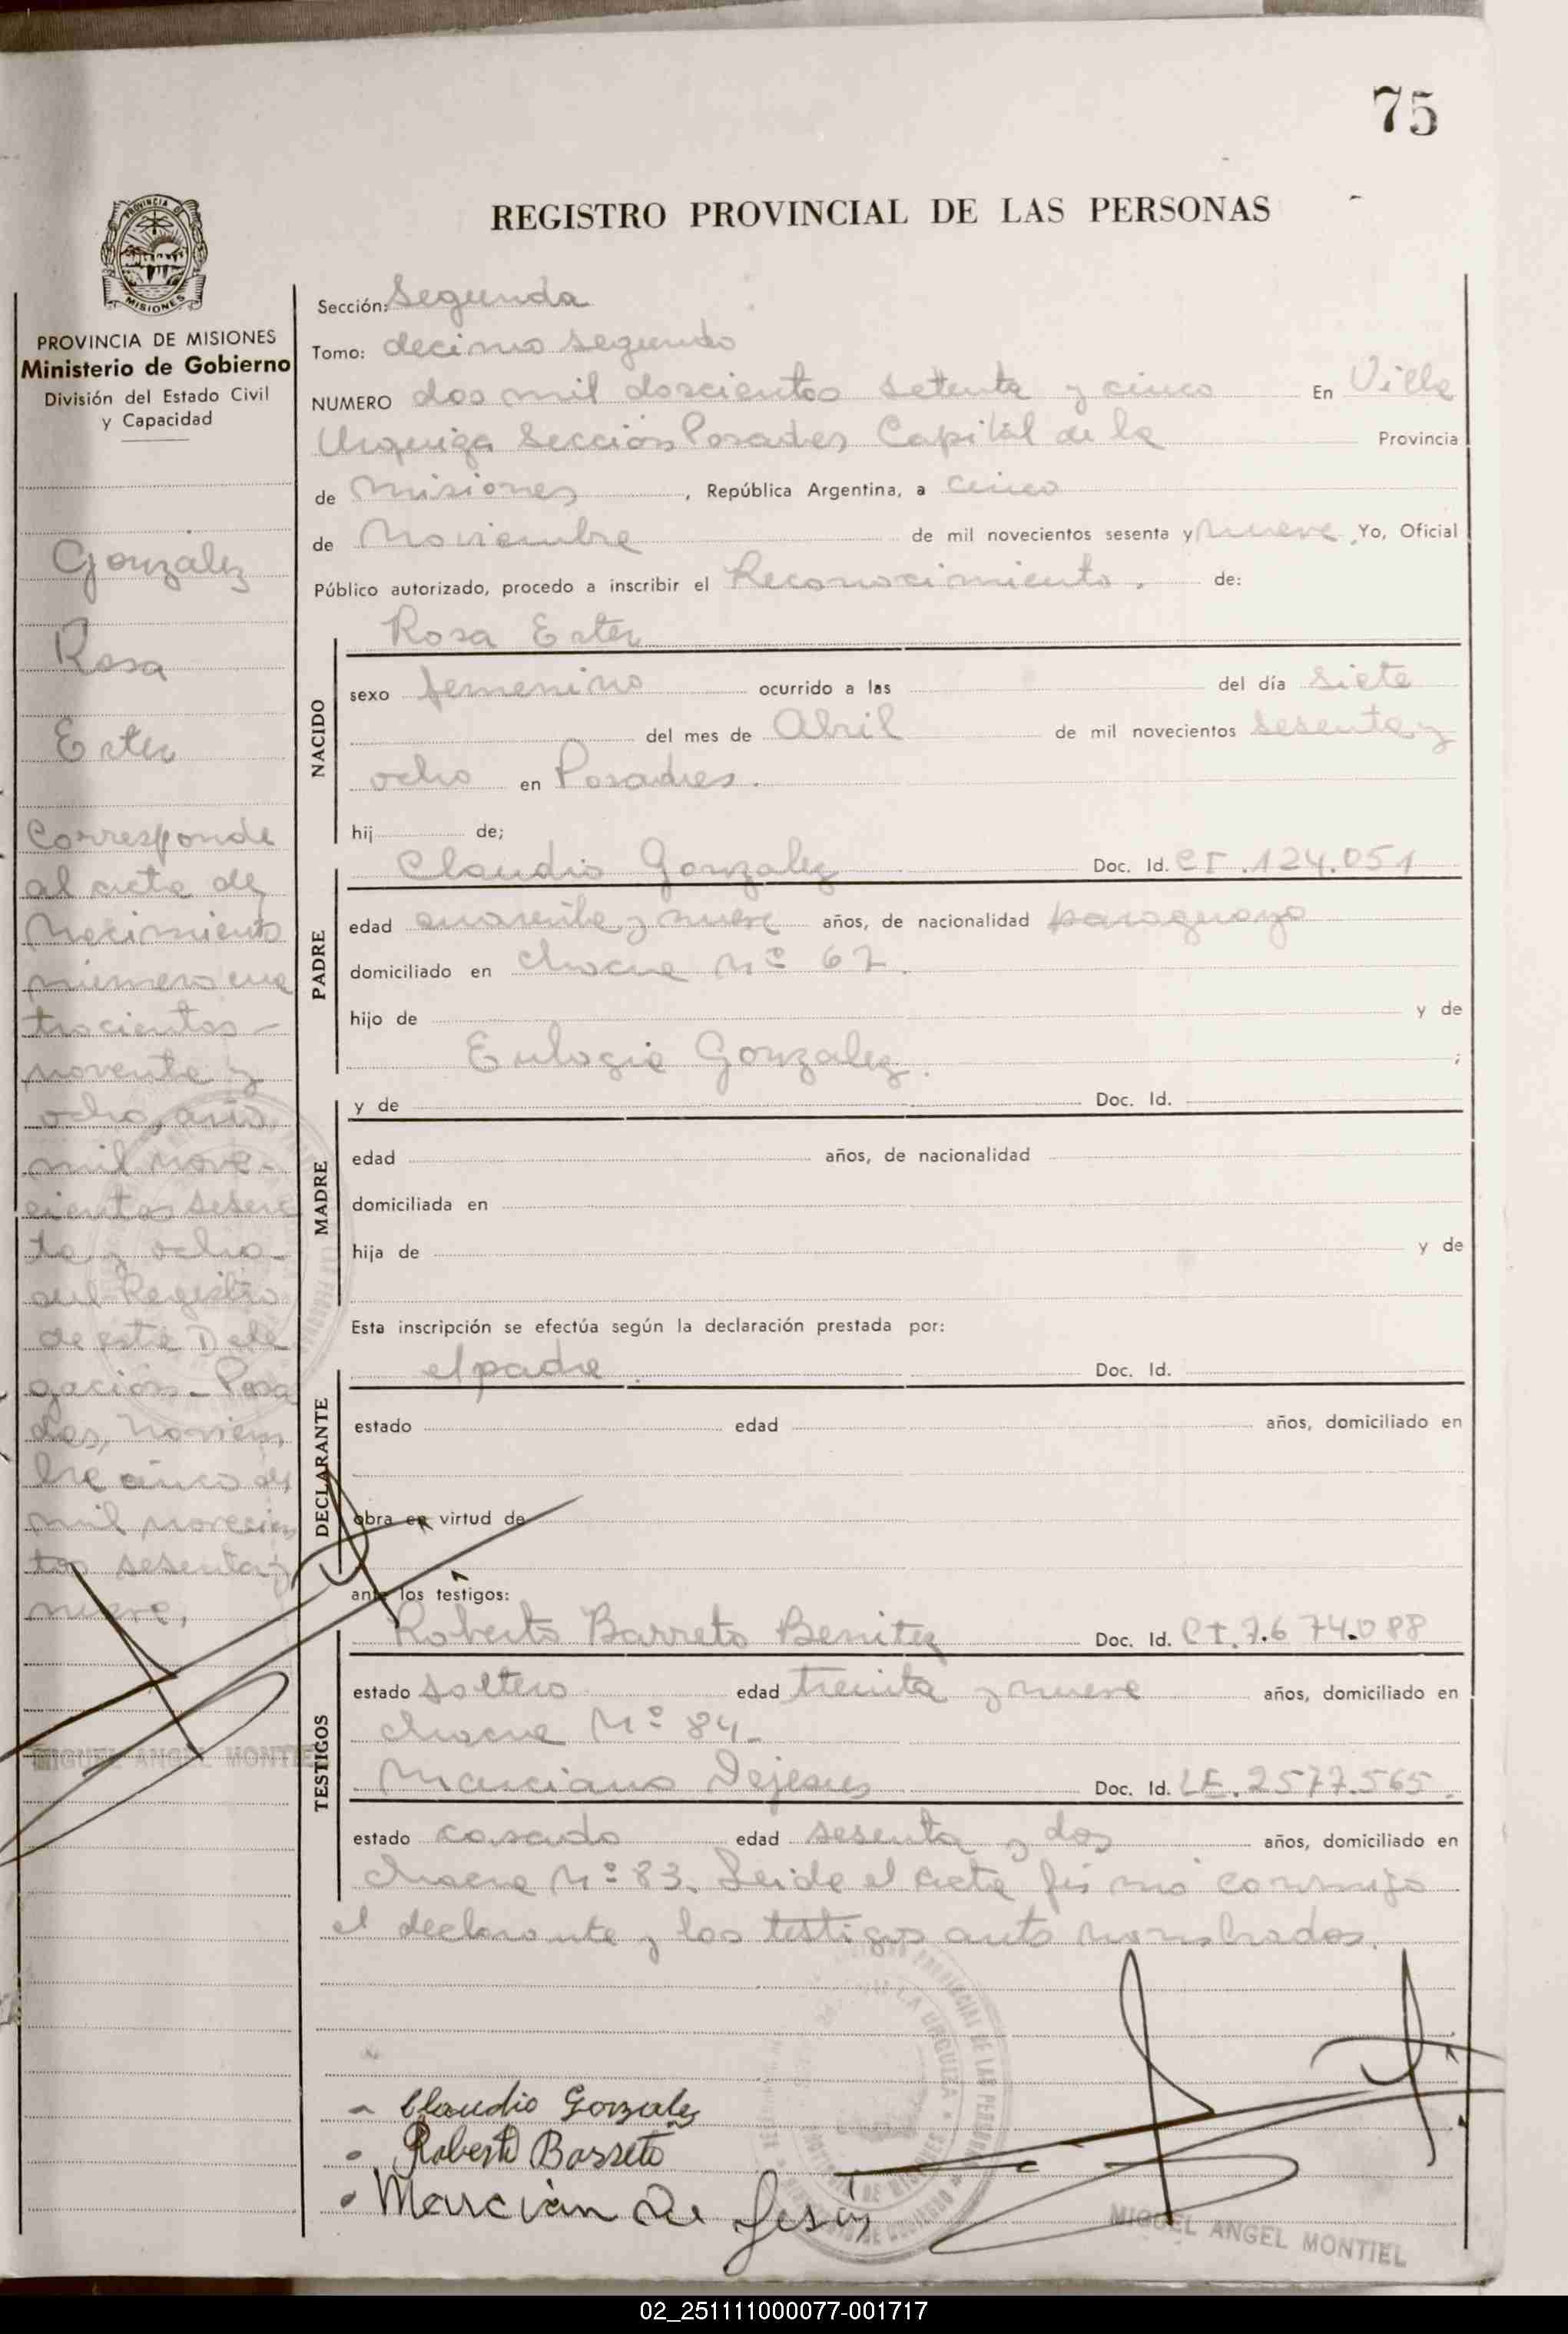 75
REGISTRO PROVINCIAL DE LAS PERSONAS
PROVINCIA DE MISIONES
Ministerio de Gobierno
División del Estado Civil
y Capacidad
Gonzalez
Rosa
Ester
Corresponde
al acta de
Nacimiento
número cua
trocientos
noventa y
ocho, año
mil nove-
cientos sesen
ta y ocho
del Registro
de esta Dele
gación - Posa
das, Noviem
bre cinco de
mil novecien
tos sesenta y
nueve,
MIGUEL ANGEL MONTIEL
Sección: Segunda
Tomo: decimo segundo
NUMERO dos mil doscientos setenta y cinco En Villa
Urquiza Sección Posadas, Capital de la Provincia
de Misiones, República Argentina, a cinco
de Noviembre de mil novecientos sesenta y nueve, Yo, Oficial
Público autorizado, procedo a inscribir el Reconocimiento. de:
Rosa Ester
NACIDO
sexo femenino ocurrido a las del día siete
del mes de Abril de mil novecientos sesenta y
ocho en Posadas.
hij de;
Claudio Gonzalez Doc. Id. CI. 124.051
PADRE
edad cuarenta y nueve años, de nacionalidad paraguayo
domiciliado en chacra Nº 67.
hijo de y de
Eulogia Gonzalez. ;
y de Doc. Id.
MADRE
edad años, de nacionalidad
domiciliada en
hija de y de
Esta inscripción se efectúa según la declaración prestada por:
el padre. Doc. Id.
DECLARANTE
estado edad años, domiciliado en
obra en virtud de
ante los testigos:
Roberto Barreto Benitez Doc. Id. CI. 7.674.088
TESTIGOS
estado soltero edad treinta y nueve años, domiciliado en
chacra Nº 84-
Marciano Dejesus Doc. Id. LE. 2577.565.
estado casado edad sesenta y dos años, domiciliado en
chacra Nº 83. Leida el acta firmó conmigo
el declarante y los testigos ante nombrados.
Claudio Gonzalez
Roberto Barreto
Marcian De Jesús
MIGUEL ANGEL MONTIEL
02_251111000077-001717